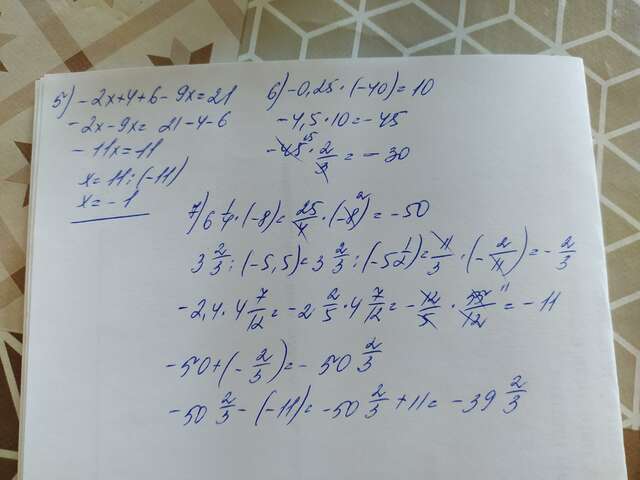 5) -2x+4+6-9x=21
-2x-9x= 21-4-6
-11x=11
x=11:(-11)
x=-1
6) -0,25·(-40)=10
-4,5·10=-45
-45 15 · 2/3 = -30
7) 6 1/4·(-8)= 25/4·(-8) 2 = -50
3 2/3:(-5,5)=3 2/3:(-5 1/2)= 11/3·(-2/11)=-2/3
-2,4·4 7/12=-2 2/5·4 7/12=-12/5·55/12 11 = -11
-50+(-2/3)=-50 2/3
-50 2/3-(-11)=-50 2/3+11=-39 2/3